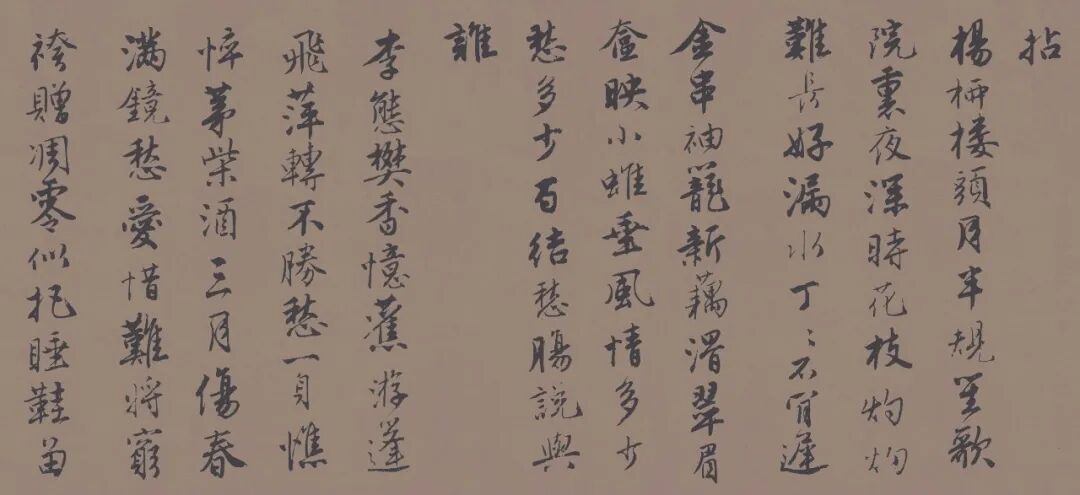 拈
楊栁楼頭月半規笙歌
院裏夜深時花枝灼灼
難長好漏水丁〻不肯遲
金串袖籠新藕滑翠眉
奩映小蛾垂風情多少
愁多少百結愁腸説與
誰
李態樊香憶舊游蓬
飛萍轉不勝愁一身憔
悴茅柴酒三月傷春
滿鏡愁愛惜難將窮
袴贈凋零似把睡鞋留